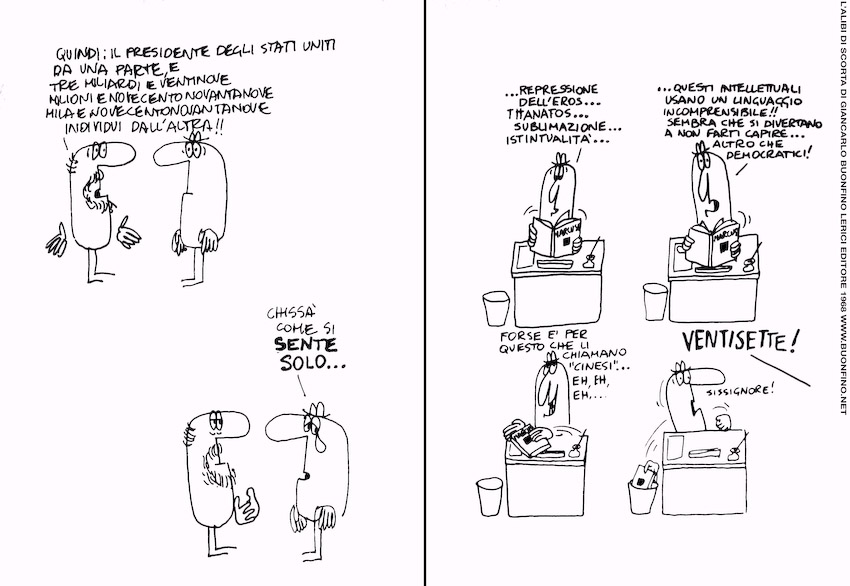 QUINDI: IL PRESIDENTE DEGLI STATI UNITI
DA UNA PARTE, E
TRE MILIARDI E VENTINOVE
MILIONI E NOVECENTONOVANTANOVE
MILA E NOVECENTONOVANTANOVE
INDIVIDUI DALL'ALTRA!!
CHISSÀ
COME SI
SENTE
SOLO...
...REPRESSIONE
DELL'EROS...
THANATOS...
SUBLIMAZIONE...
ISTINTUALITÀ...
MARCUSE
...QUESTI INTELLETTUALI
USANO UN LINGUAGGIO
INCOMPRENSIBILE!!
SEMBRA CHE SI DIVERTANO
A NON FARTI CAPIRE...
ALTRO CHE
DEMOCRATICI!
MARCUSE
FORSE E' PER
QUESTO CHE LI
CHIAMANO
"CINESI"...
EH, EH,
EH,...
VENTISETTE!
SISSIGNORE!
L'ALIBI DI SCORTA DI GIANCARLO BUONFINO LERICI EDITORE 1968 WWW.BUONFINO.NET